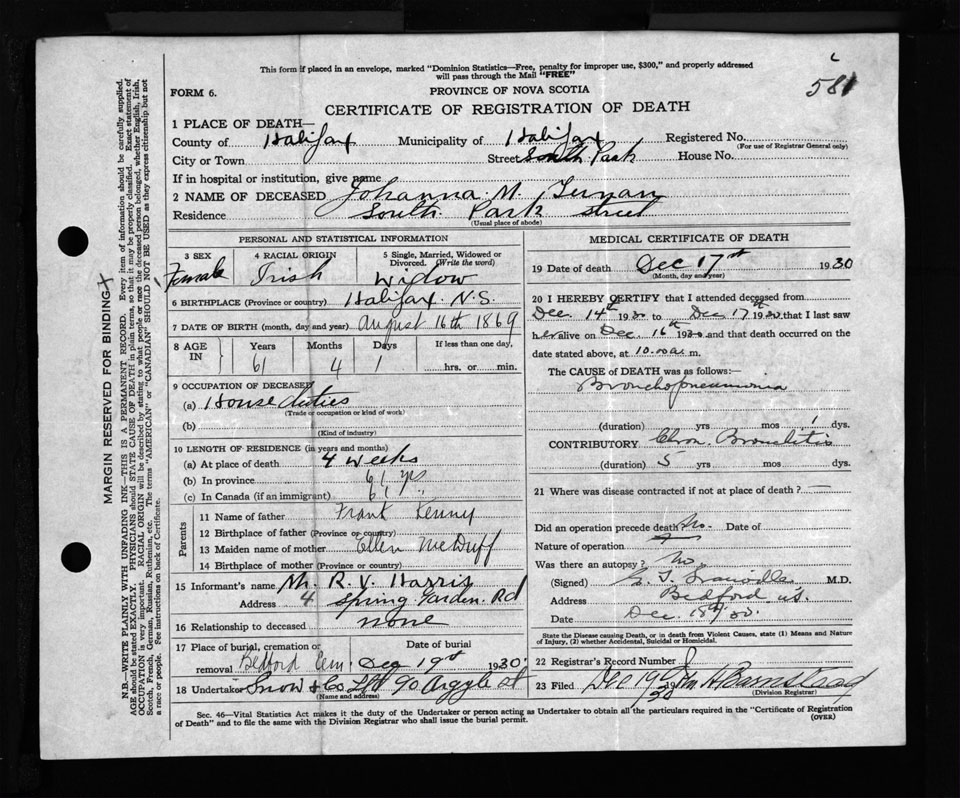 This form if placed in an envelope, marked "Dominion Statistics—Free, penalty for improper use, $300," and properly addressed
will pass through the Mail "FREE"
581
FORM 6.
PROVINCE OF NOVA SCOTIA
CERTIFICATE OF REGISTRATION OF DEATH
1 PLACE OF DEATH—
County of Halifax Municipality of Halifax Registered No.
(For use of Registrar General only)
City or Town Street South Park House No.
If in hospital or institution, give name
2 NAME OF DECEASED Johanna M.
Residence South Park Street
(Usual place of abode)
PERSONAL AND STATISTICAL INFORMATION
3 SEX 4 RACIAL ORIGIN 5 Single, Married, Widowed or
Divorced. (Write the word)
Female Irish Widow
6 BIRTHPLACE (Province or country) Halifax N.S.
7 DATE OF BIRTH (month, day and year) August 16th 1869
8 AGE IN Years Months Days If less than one day,
61 4 1 hrs. or min.
9 OCCUPATION OF DECEASED
(a) House duties
(Trade or occupation or kind of work)
(b)
(Kind of industry)
10 LENGTH OF RESIDENCE (in years and months)
(a) At place of death 4 weeks
(b) In province 61 yrs
(c) In Canada (if an immigrant) 61 "
Parents
11 Name of father Frank Kenny
12 Birthplace of father (Province or country)
13 Maiden name of mother Ellen McDuff
14 Birthplace of mother (Province or country)
15 Informant's name Mr. R. V. Harris
Address 4 Spring Garden Rd
16 Relationship to deceased none
17 Place of burial, cremation or Date of burial
removal Bedford Cem. Dec 19th 1930
18 Undertaker Snow & Co Ltd 90 Argyle St
(Name and address)
MEDICAL CERTIFICATE OF DEATH
19 Date of death Dec 17th 1930
(Month, day and year)
20 I HEREBY CERTIFY that I attended deceased from
Dec. 14th 1930 to Dec 17th 1930 that I last saw
her alive on Dec. 16th 1930 and that death occurred on
date stated above, at 10.00 a. m.
The CAUSE of DEATH was as follows:—
Bronchopneumonia
(duration) yrs mos 1 dys.
CONTRIBUTORY Chron. Bronchitis
(duration) 5 yrs mos dys.
21 Where was disease contracted if not at place of death? —
Did an operation precede death? No. Date of
Nature of operation
Was there an autopsy? No.
(Signed) M.D.
Address Bedford N.S.
Date Dec. 18th/30.
State the Disease causing Death, or in death from Violent Causes, state (1) Means and Nature of Injury, (2) whether Accidental, Suicidal or Homicidal.
22 Registrar's Record Number
23 Filed Dec 19th/30 H Barnstead
(Division Registrar)
Sec. 46—Vital Statistics Act makes it the duty of the Undertaker or person acting as Undertaker to obtain all the particulars required in the "Certificate of Registration
of Death" and to file the same with the Division Registrar who shall issue the burial permit.
(OVER)
MARGIN RESERVED FOR BINDING
N.B.—WRITE PLAINLY WITH UNFADING INK—THIS IS A PERMANENT RECORD. Every item of information should be carefully supplied.
AGE should be stated EXACTLY. PHYSICIANS should STATE CAUSE OF DEATH in plain terms, so that it may be properly classified. Exact statement of
OCCUPATION is very important. RACIAL ORIGIN will be described by stating to what people or race the deceased person belonged, whether English, Irish,
Scotch, French, German, Russian, Ruthenian, etc. The terms "AMERICAN" or "CANADIAN" SHOULD NOT BE USED as they express citizenship but not
a race or people. See instructions on back of Certificate.